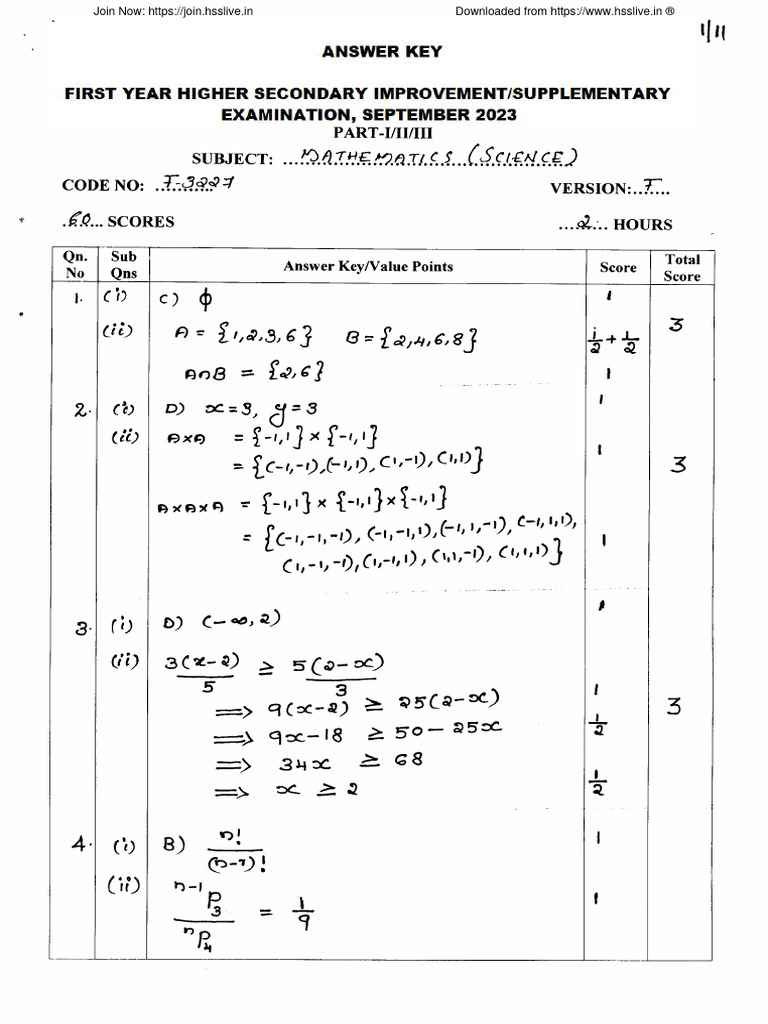 Join Now: https://join.hsslive.in Downloaded from https://www.hsslive.in ®
1/11
ANSWER KEY
FIRST YEAR HIGHER SECONDARY IMPROVEMENT/SUPPLEMENTARY
EXAMINATION, SEPTEMBER 2023
PART-I/II/III
SUBJECT: ...MATHEMATICS...(SCIENCE)
CODE NO: ..F-3227 VERSION:..F....
.60... SCORES ....2..... HOURS
Qn. No Sub Qns Answer Key/Value Points Score Total Score
1. (i) C) ϕ 1
(ii) A = {1,2,3,6} B = {2,4,6,8} 1/2 + 1/2 3
A∩B = {2,6} 1
2. (i) D) x=3, y=3 1
(ii) A×A = {-1,1} × {-1,1}
= {(-1,-1),(-1,1),(1,-1),(1,1)} 1 3
A×A×A = {-1,1} × {-1,1} × {-1,1}
= {(-1,-1,-1), (-1,-1,1), (-1,1,-1), (-1,1,1),
(1,-1,-1), (1,-1,1), (1,1,-1), (1,1,1)} 1
3. (i) D) (-∞,2) 1
(ii) 3(x-2)/5 ≥ 5(2-x)/3
⟹ 9(x-2) ≥ 25(2-x) 1 3
⟹ 9x-18 ≥ 50-25x 1/2
⟹ 34x ≥ 68
⟹ x ≥ 2 1/2
4. (i) B) n!/(n-r)! 1
(ii) n-1P3/nP4 = 1/9 1